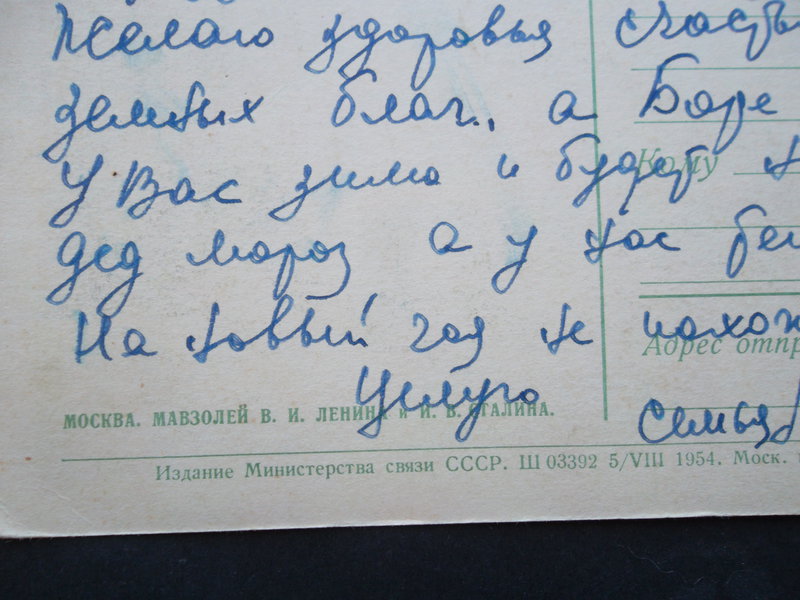 Желаю здоровья счасть
земных благ., а Боре
Кому
У Вас зима и будет
дед мороз а у нас
На новый год не похож
Адрес отпр
Целую
МОСКВА. МАВЗОЛЕЙ В. И. ЛЕНИНА и И. В. СТАЛИНА.
Семья
Издание Министерства связи СССР. Ш 03392 5/VIII 1954. Моск.